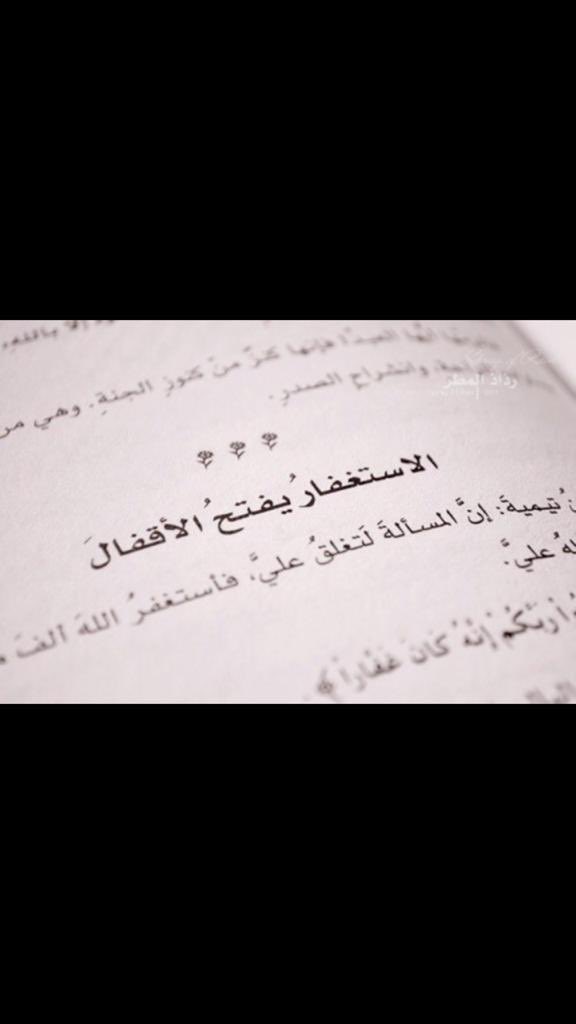 إلا بالله،
فإنها كنزٌ منْ كنوزِ الجنةِ. وهي من
وانشراحِ الصدرِ.
رذاذ المطر
الاستغفارُ يفتحُ الأقفالَ
تيميةَ: إنَّ المسألةَ لَتغلقُ عليَّ، فأستغفرُ اللهَ ألفَ
عليَّ.
رَبَّكُمْ إِنَّهُ كَانَ غَفَّاراً﴾.